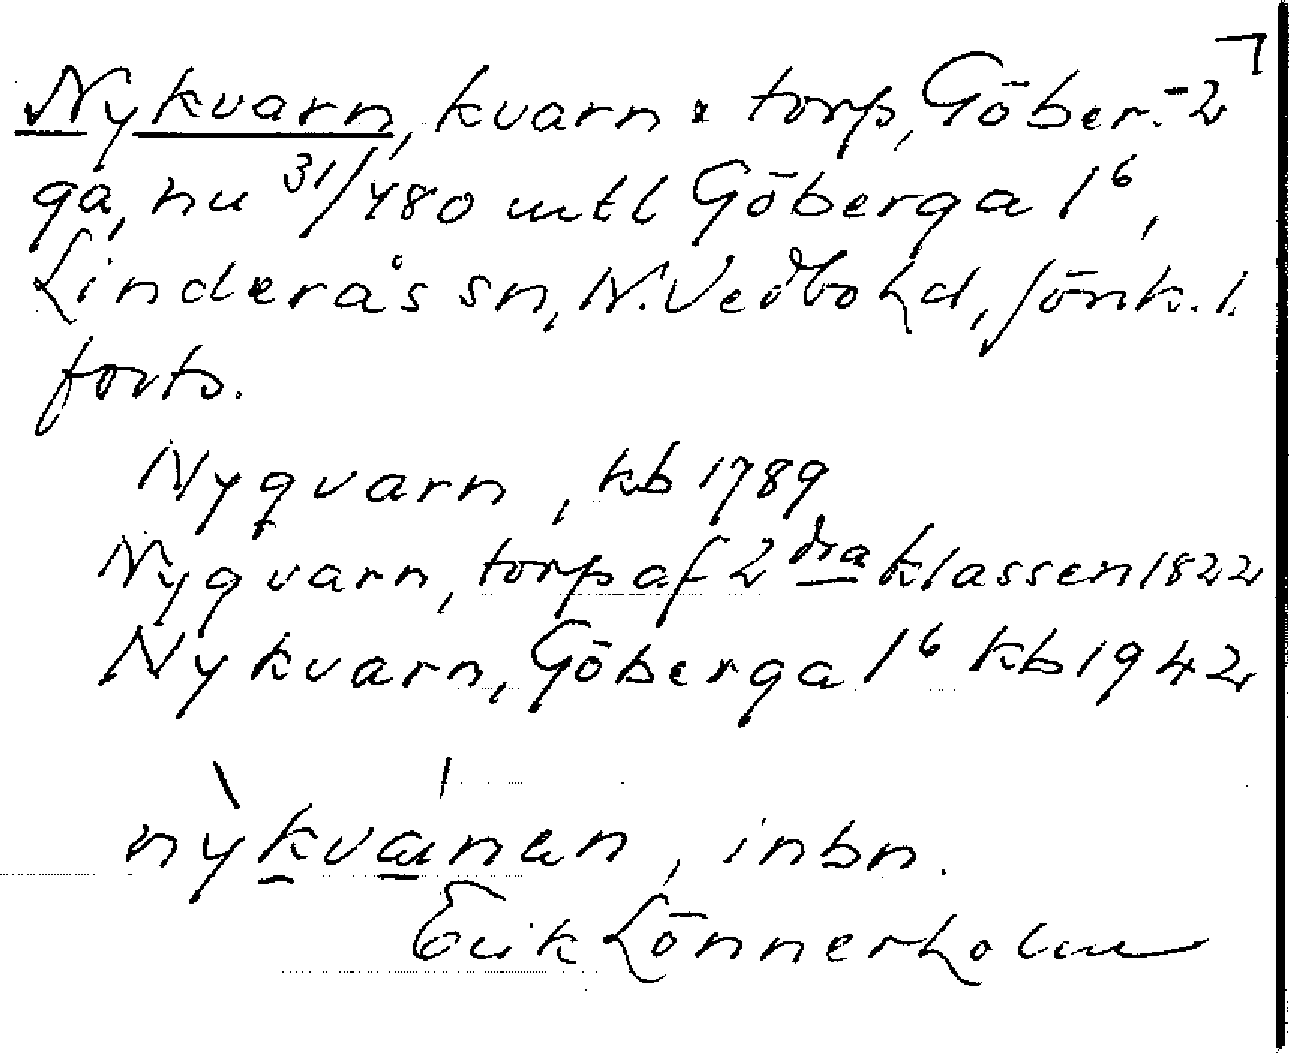 Nykvarn, kvarn o torp, Göber- 2
ga, nu 31/480 mtl Göberga 1⁶,
Linderås sn, N. Vedbo hd, Jönk. l.
forts.
Nyqvarn, kb 1789
Nyqvarn, torp af 2dra klassen 1822
Nykvarn, Göberga 1⁶ kb 1942
nỳkvánen, inbn.
Erik Lönnerholm